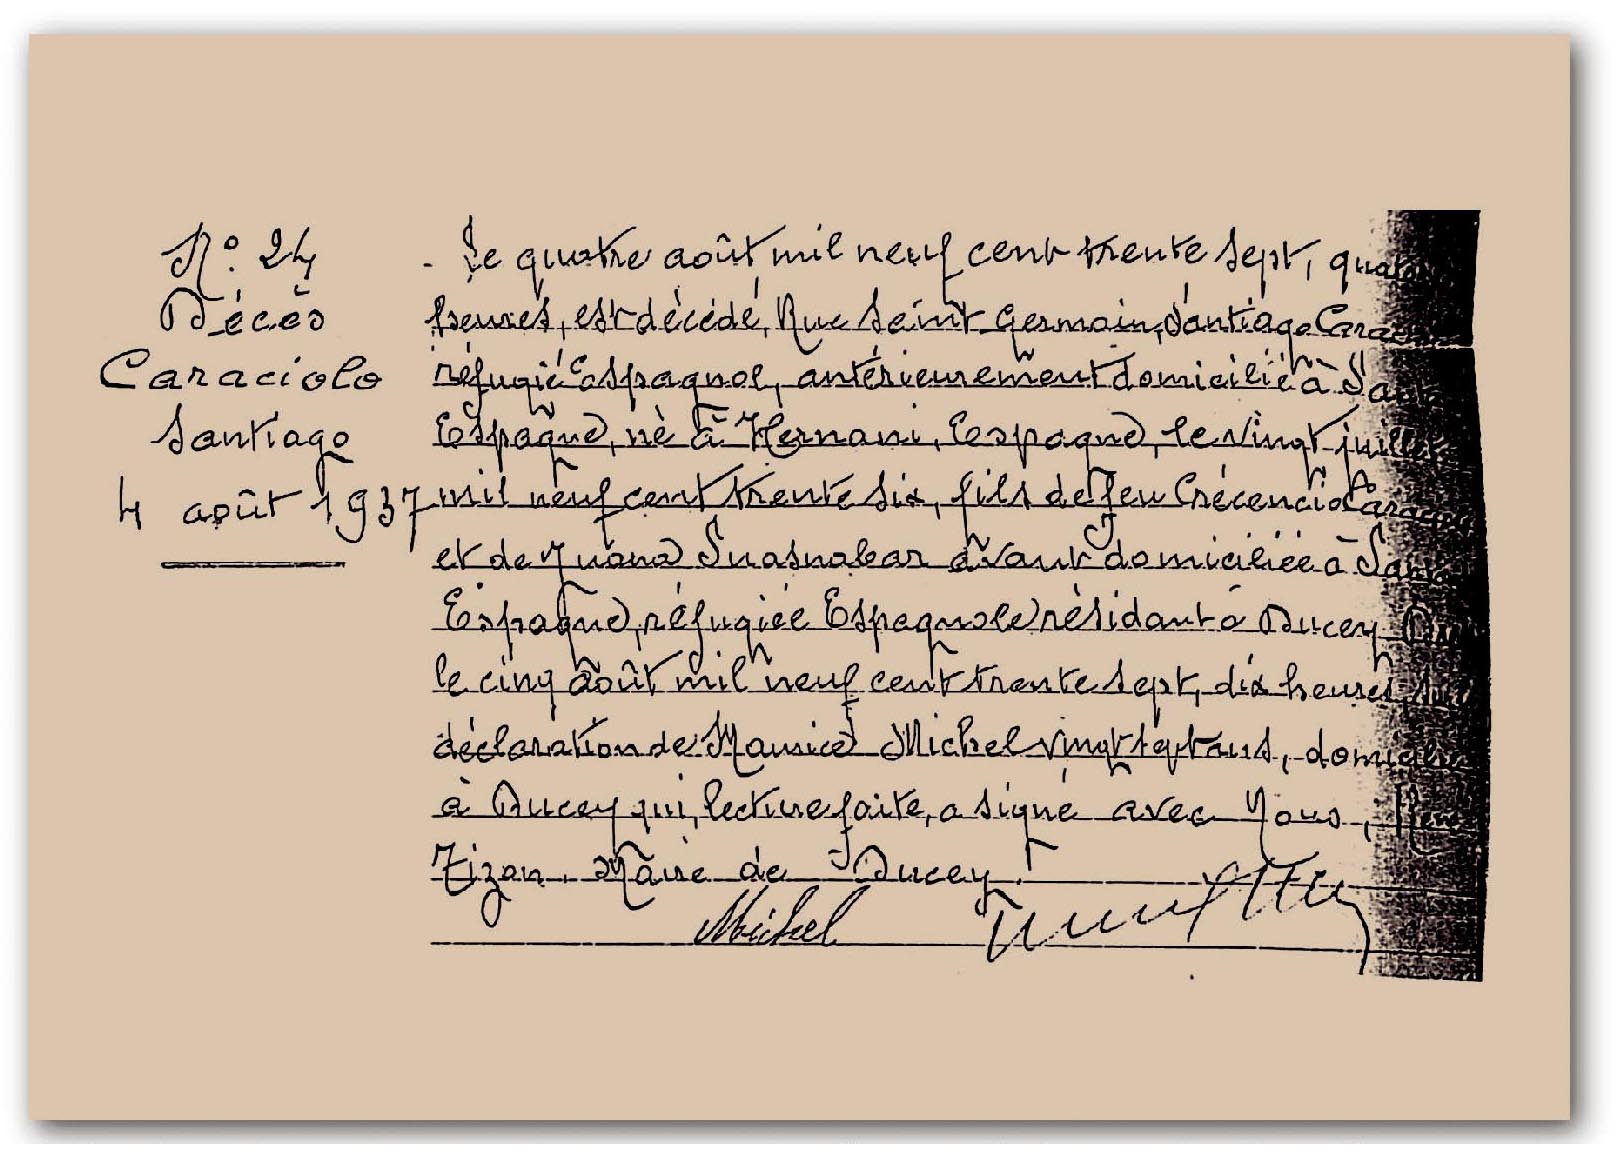 N° 24
Décès
Caraciolo
Santiago
4 août 1937
Le quatre août mil neuf cent trente sept,
heures, est décédé, Rue Saint Germain, Santiago
réfugié Espagnol, antérieurement domicilié à
Espagne, né à Hernani, Espagne, le vingt juillet
mil neuf cent trente six, fils de feu Crécencio
et de Juana Suasnabar avant domiciliée à
Espagne, réfugiée Espagnole résidant à Ducey
le cinq août mil neuf cent trente sept, dix heures, sur
déclaration de Maurice Michel vingt sept ans,
à Ducey qui, lecture faite, a signé avec Nous,
Tizon, Maire de Ducey.
Michel